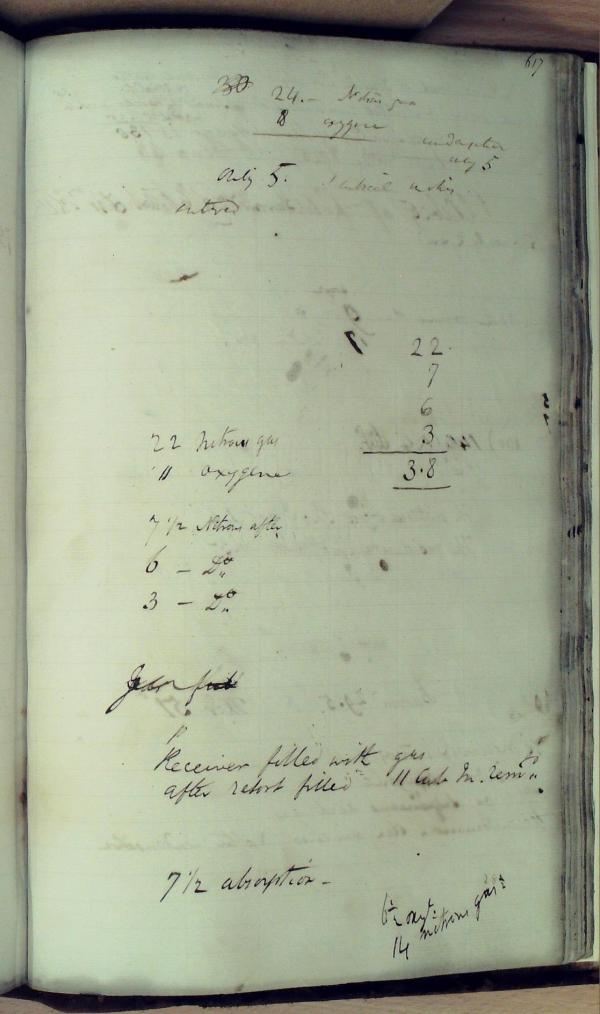 617
24.- Nitrous gas
18 oxygene
only 5
only 5.
entered
22.
7
6
3
3.8
22 Nitrous gas
11 oxygene
7 1/2 Nitrous after
6 - Do
3 - Do
Receiver filled with gas
after retort filled 11 Cub In. remd.
7 1/2 absorption -
6 1/2 oxy:
14 nitrous gas: